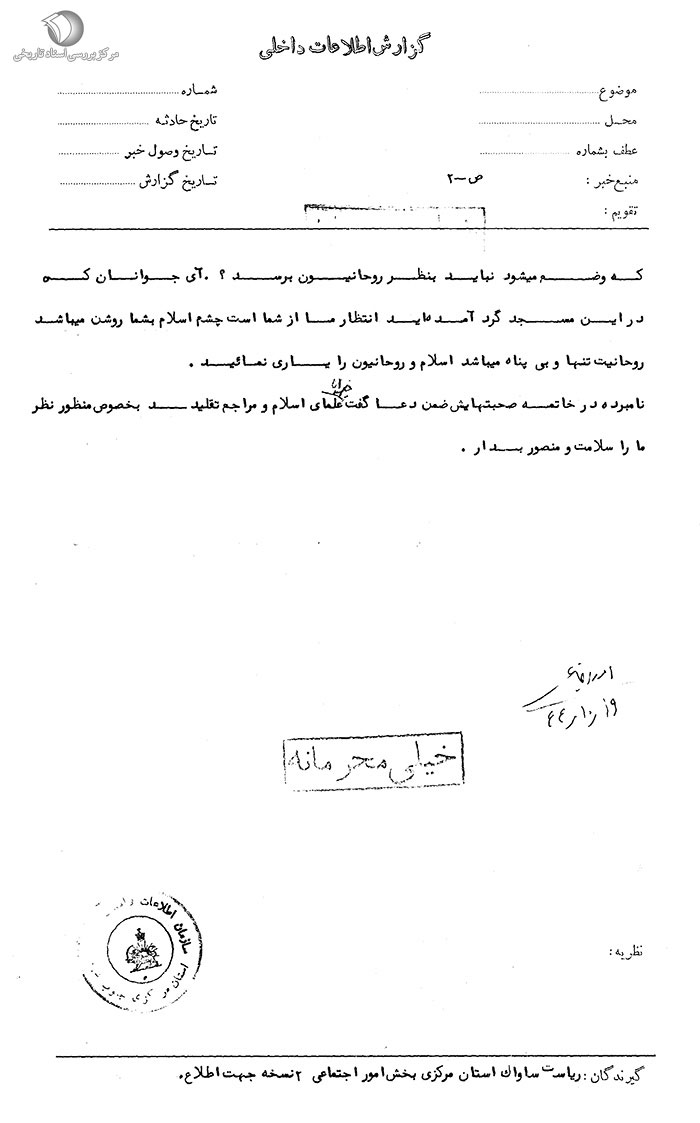 مرکز بررسی اسناد تاریخی
گزارش اطلاعات داخلی
موضوع
محل
عطف بشماره
منبع خبر : ص-۲
تقویم :
شماره
تاریخ حادثه
تاریخ وصول خبر
تاریخ گزارش
که وضع میشود نباید بنظر روحانیون برسد ؟ . آی جوانان که
در این مسجد گرد آمده اید انتظار ما از شما است چشم اسلام بشما روشن میباشد
روحانیت تنها و بی پناه میباشد اسلام و روحانیون را یاری نمائید .
خدایا
نامبرده در خاتمه صحبتهایش ضمن دعا گفت علمای اسلام و مراجع تقلید بخصوص منظور نظر
ما را سلامت و منصور بدار .
۱۹ر۱۰ر۴۴
خیلی محرمانه
سازمان اطلاعات و
استان مرکزی
نظریه :
گیرندگان : ریاست ساواك استان مرکزی بخش امور اجتماعی ۲ نسخه جهت اطلاع .